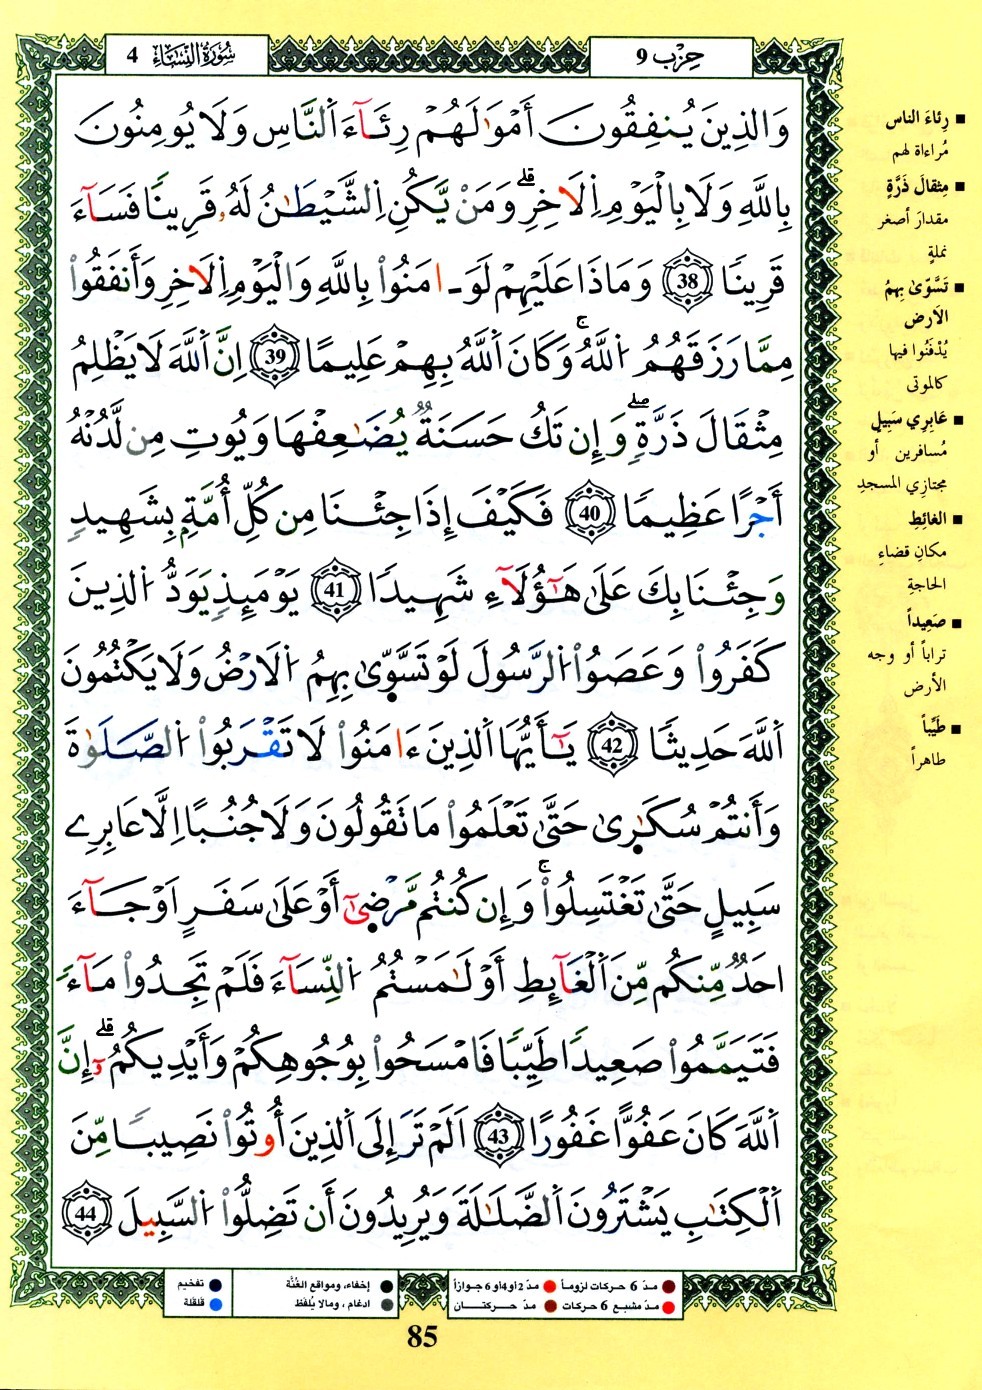 سُورَةُ النِّسَاءِ 4
حِزْب 9
وَالذِينَ يُنفِقُونَ أَمْوَٰلَهُمْ رِئَآءَ اَ۬لنَّاسِ وَلَا يُومِنُونَ
بِاللَّهِ وَلَا بِالْيَوْمِ اِ۬لَاخِرِۖ وَمَنْ يَّكُنِ اِ۬لشَّيْطَٰنُ لَهُۥ قَرِيناٗ فَسَآءَ
قَرِيناٗ 38 وَمَاذَا عَلَيْهِمْ لَوَ ـ امَنُواْ بِاللَّهِ وَالْيَوْمِ اِ۬لَاخِرِ وَأَنفَقُواْ
مِمَّا رَزَقَهُمُ اُ۬للَّهُۚ وَكَانَ اَ۬للَّهُ بِهِمْ عَلِيماًۖ 39 اِنَّ اَ۬للَّهَ لَا يَظْلِمُ
مِثْقَالَ ذَرَّةٖۖ وَإِن تَكُ حَسَنَةٞ يُضَٰعِفْهَا وَيُوتِ مِن لَّدُنْهُ
أَجْراً عَظِيماٗ 40 فَكَيْفَ إِذَا جِئْنَا مِن كُلِّ أُمَّةِۢ بِشَهِيدٖ
وَجِئْنَا بِكَ عَلَىٰ هَٰٓؤُلَآءِ شَهِيداٗ 41 يَوْمَئِذٖ يَوَدُّ اُ۬لذِينَ
كَفَرُواْ وَعَصَوُاْ اُ۬لرَّسُولَ لَوْ تَسَّوّ۪ىٰ بِهِمُ اُ۬لَارْضُ وَلَا يَكْتُمُونَ
اَ۬للَّهَ حَدِيثاٗ 42 يَٰٓأَيُّهَا اَ۬لذِينَ ءَامَنُواْ لَا تَقْرَبُواْ اُ۬لصَّلَوٰةَ
وَأَنتُمْ سُكَٰر۪ىٰ حَتَّىٰ تَعْلَمُواْ مَا تَقُولُونَ وَلَا جُنُباً اِلَّا عَابِرِے
سَبِيلٍ حَتَّىٰ تَغْتَسِلُواْۚ وَإِن كُنتُم مَّرْض۪ىٰٓ أَوْ عَلَىٰ سَفَرٍ اَوْ جَآءَ
احَدٞ مِّنكُم مِّنَ اَ۬لْغَآئِطِ أَوْ لَٰمَسْتُمُ اُ۬لنِّسَآءَ فَلَمْ تَجِدُواْ مَآءٗ
فَتَيَمَّمُواْ صَعِيداٗ طَيِّباٗ فَامْسَحُواْ بِوُجُوهِكُمْ وَأَيْدِيكُمُۥٓۖ إِنَّ
اَ۬للَّهَ كَانَ عَفُوّاً غَفُوراًۖ 43 اَلَمْ تَرَ إِلَى اَ۬لذِينَ أُوتُواْ نَصِيباٗ مِّنَ
اَ۬لْكِتَٰبِ يَشْتَرُونَ اَ۬لضَّلَٰلَةَ وَيُرِيدُونَ أَن تَضِلُّواْ اُ۬لسَّبِيلَ 44
رِئاءَ الناس
مُراءاة لهم
مِثقالَ ذَرَّةٍ
مقدارَ أصغر
نملةٍ
تَسَّوّىٰ بِهِمُ
الاَرض
يُدْفَنُوا فيها
كالموتى
عَابِرِي سَبِيلٍ
مُسافرين أو
مجتازِي المسجدِ
الغائِطِ
مكانِ قضاءِ
الحاجةِ
صَعِيداً
تراباً أو وجه
الأرض
طَيِّباً
طاهراً
مدّ 6 حركات لزوماً مدّ 2 او 4 او 6 جوازاً
مدّ مشبع 6 حركات مدّ حركتان
إخفاء، ومواقع الغُنَّة
ادغام ، ومالا يُلفظ
تفخيم
قلقلة
85